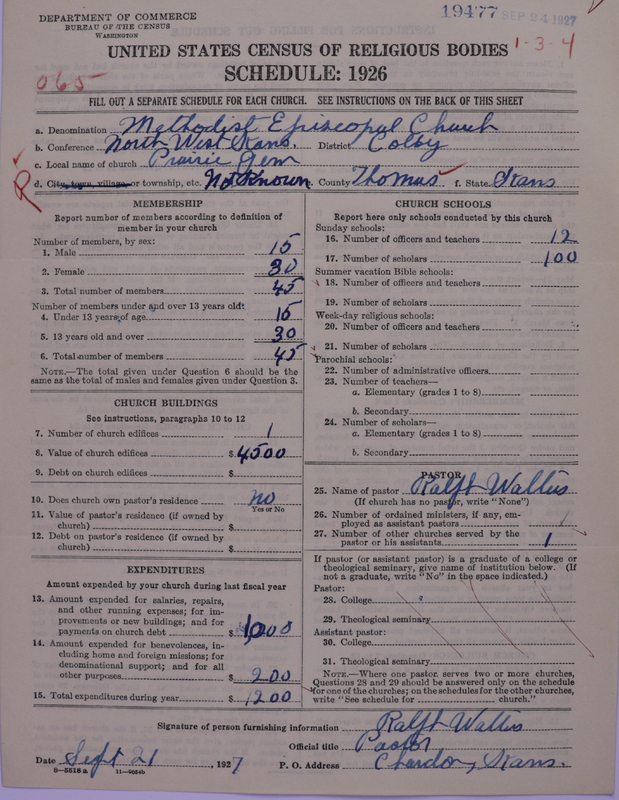 DEPARTMENT OF COMMERCE
BUREAU OF THE CENSUS
WASHINGTON
19477 SEP 24 1927
UNITED STATES CENSUS OF RELIGIOUS BODIES
1-3-4
SCHEDULE: 1926
065
FILL OUT A SEPARATE SCHEDULE FOR EACH CHURCH. SEE INSTRUCTIONS ON THE BACK OF THIS SHEET
a. Denomination Methodist Episcopal Church
b. Conference North West Kans. District Colby
c. Local name of church Prairie Gem
R
d. City, town, village, or township, etc. Not Known County Thomas f. State Kans
MEMBERSHIP
Report number of members according to definition of member in your church
Number of members, by sex:
1. Male 15
2. Female 30
3. Total number of members 45
Number of members under and over 13 years old:
4. Under 13 years of age 15
5. 13 years old and over 30
6. Total number of members 45
NOTE.—The total given under Question 6 should be the same as the total of males and females given under Question 3.
CHURCH BUILDINGS
See instructions, paragraphs 10 to 12
7. Number of church edifices 1
8. Value of church edifices $ 4500
9. Debt on church edifices $
10. Does church own pastor's residence no
Yes or No
11. Value of pastor's residence (if owned by church) $
12. Debt on pastor's residence (if owned by church) $
EXPENDITURES
Amount expended by your church during last fiscal year
13. Amount expended for salaries, repairs, and other running expenses; for improvements or new buildings; and for payments on church debt $ 1000
14. Amount expended for benevolences, including home and foreign missions; for denominational support; and for all other purposes $ 200
15. Total expenditures during year $ 1200
CHURCH SCHOOLS
Report here only schools conducted by this church
Sunday schools:
16. Number of officers and teachers 12
17. Number of scholars 100
Summer vacation Bible schools:
18. Number of officers and teachers
19. Number of scholars
Week-day religious schools:
20. Number of officers and teachers
21. Number of scholars
Parochial schools:
22. Number of administrative officers
23. Number of teachers—
a. Elementary (grades 1 to 8)
b. Secondary
24. Number of scholars—
a. Elementary (grades 1 to 8)
b. Secondary
PASTOR
25. Name of pastor Ralph Wallis
(If church has no pastor, write "None")
26. Number of ordained ministers, if any, employed as assistant pastors
27. Number of other churches served by the pastor or his assistants 1
If pastor (or assistant pastor) is a graduate of a college or theological seminary, give name of institution below. (If not a graduate, write "No" in the space indicated.)
Pastor:
28. College
29. Theological seminary
Assistant pastor:
30. College
31. Theological seminary
NOTE.—Where one pastor serves two or more churches, Questions 28 and 29 should be answered only on the schedule for one of the churches; on the schedules for the other churches, write "See schedule for church."
Signature of person furnishing information Ralph Wallis
Official title Pastor
Date Sept 21, 1927 P. O. Address Chardon, Kans.
8—5518 a 11—9034b